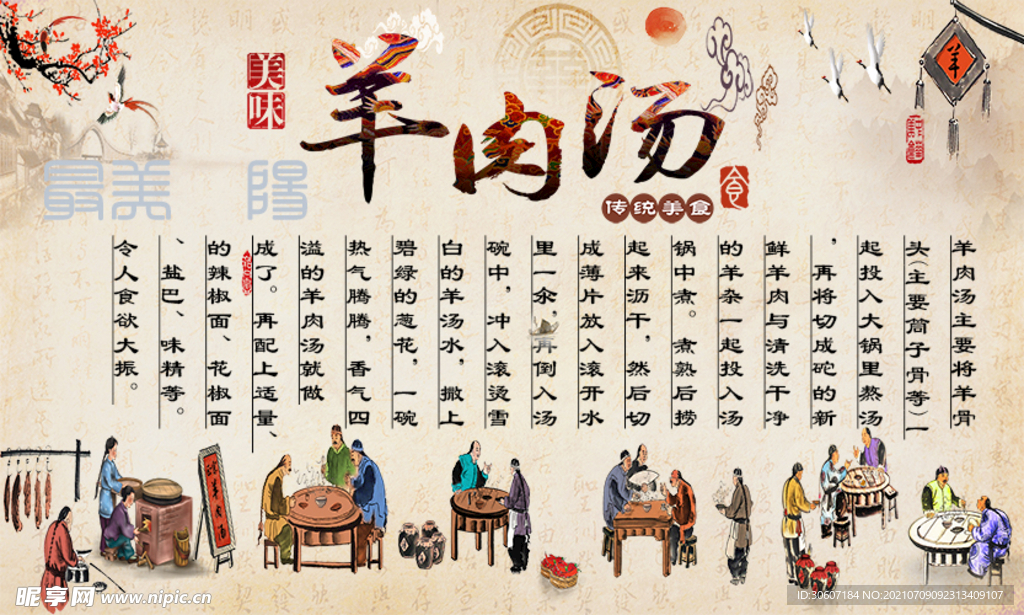 美味
羊肉汤
食
传统美食
羊
最美 陽
羊肉汤主要将羊骨
头(主要筒子骨等)一
起投入大锅里熬汤
，再将切成砣的新
鲜羊肉与清洗干净
的羊杂一起投入汤
锅中煮。煮熟后捞
起来沥干，然后切
成薄片放入滚开水
里一汆，再倒入汤
碗中，冲入滚烫雪
白的羊汤水，撒上
碧绿的葱花，一碗
热气腾腾，香气四
溢的羊肉汤就做
成了。再配上适量、
的辣椒面、花椒面
、盐巴、味精等。
令人食欲大振。
昵享网 www.nipic.cn
ID:30607184 NO:20210709092313409107